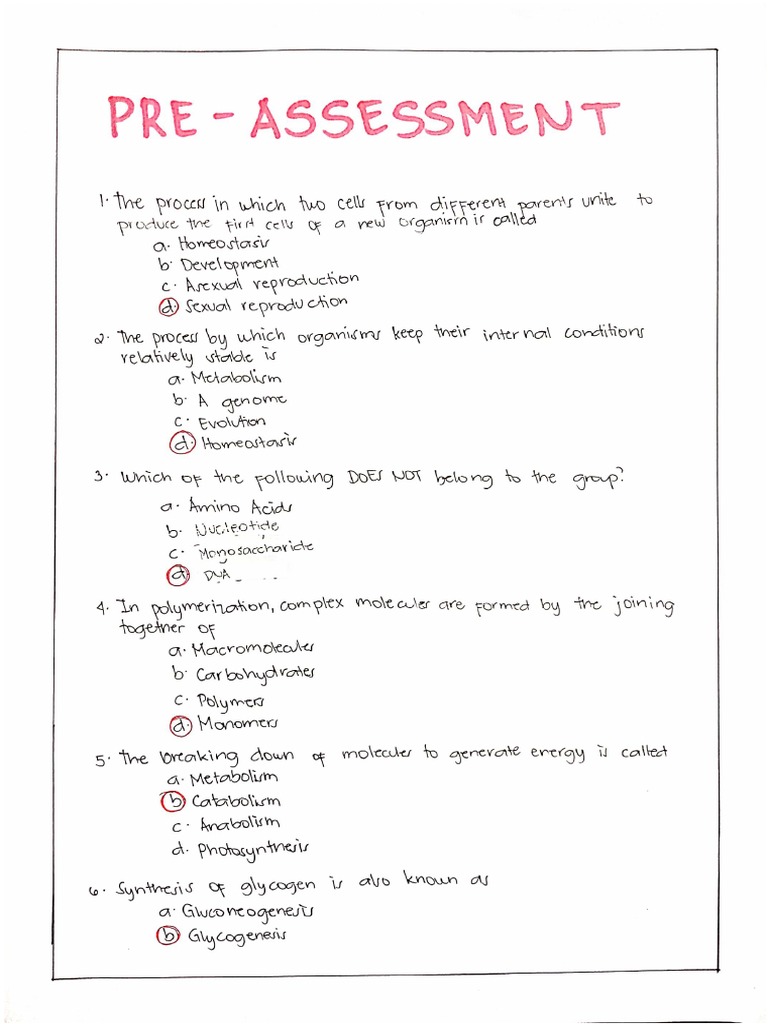 PRE-ASSESSMENT
1. The process in which two cells from different parents unite to
produce the first cells of a new organism is called
a. Homeostasis
b. Development
c. Asexual reproduction
d. Sexual reproduction
2. The process by which organisms keep their internal conditions
relatively stable is
a. Metabolism
b. A genome
c. Evolution
d. Homeostasis
3. Which of the following DOES NOT belong to the group?
a. Amino Acids
b. Nucleotide
c. Monosaccharide
d. DNA
4. In polymerization, complex molecules are formed by the joining
together of
a. Macromolecules
b. Carbohydrates
c. Polymers
d. Monomers
5. The breaking down of molecules to generate energy is called
a. Metabolism
b. Catabolism
c. Anabolism
d. Photosynthesis
6. Synthesis of glycogen is also known as
a. Gluconeogenesis
b. Glycogenesis